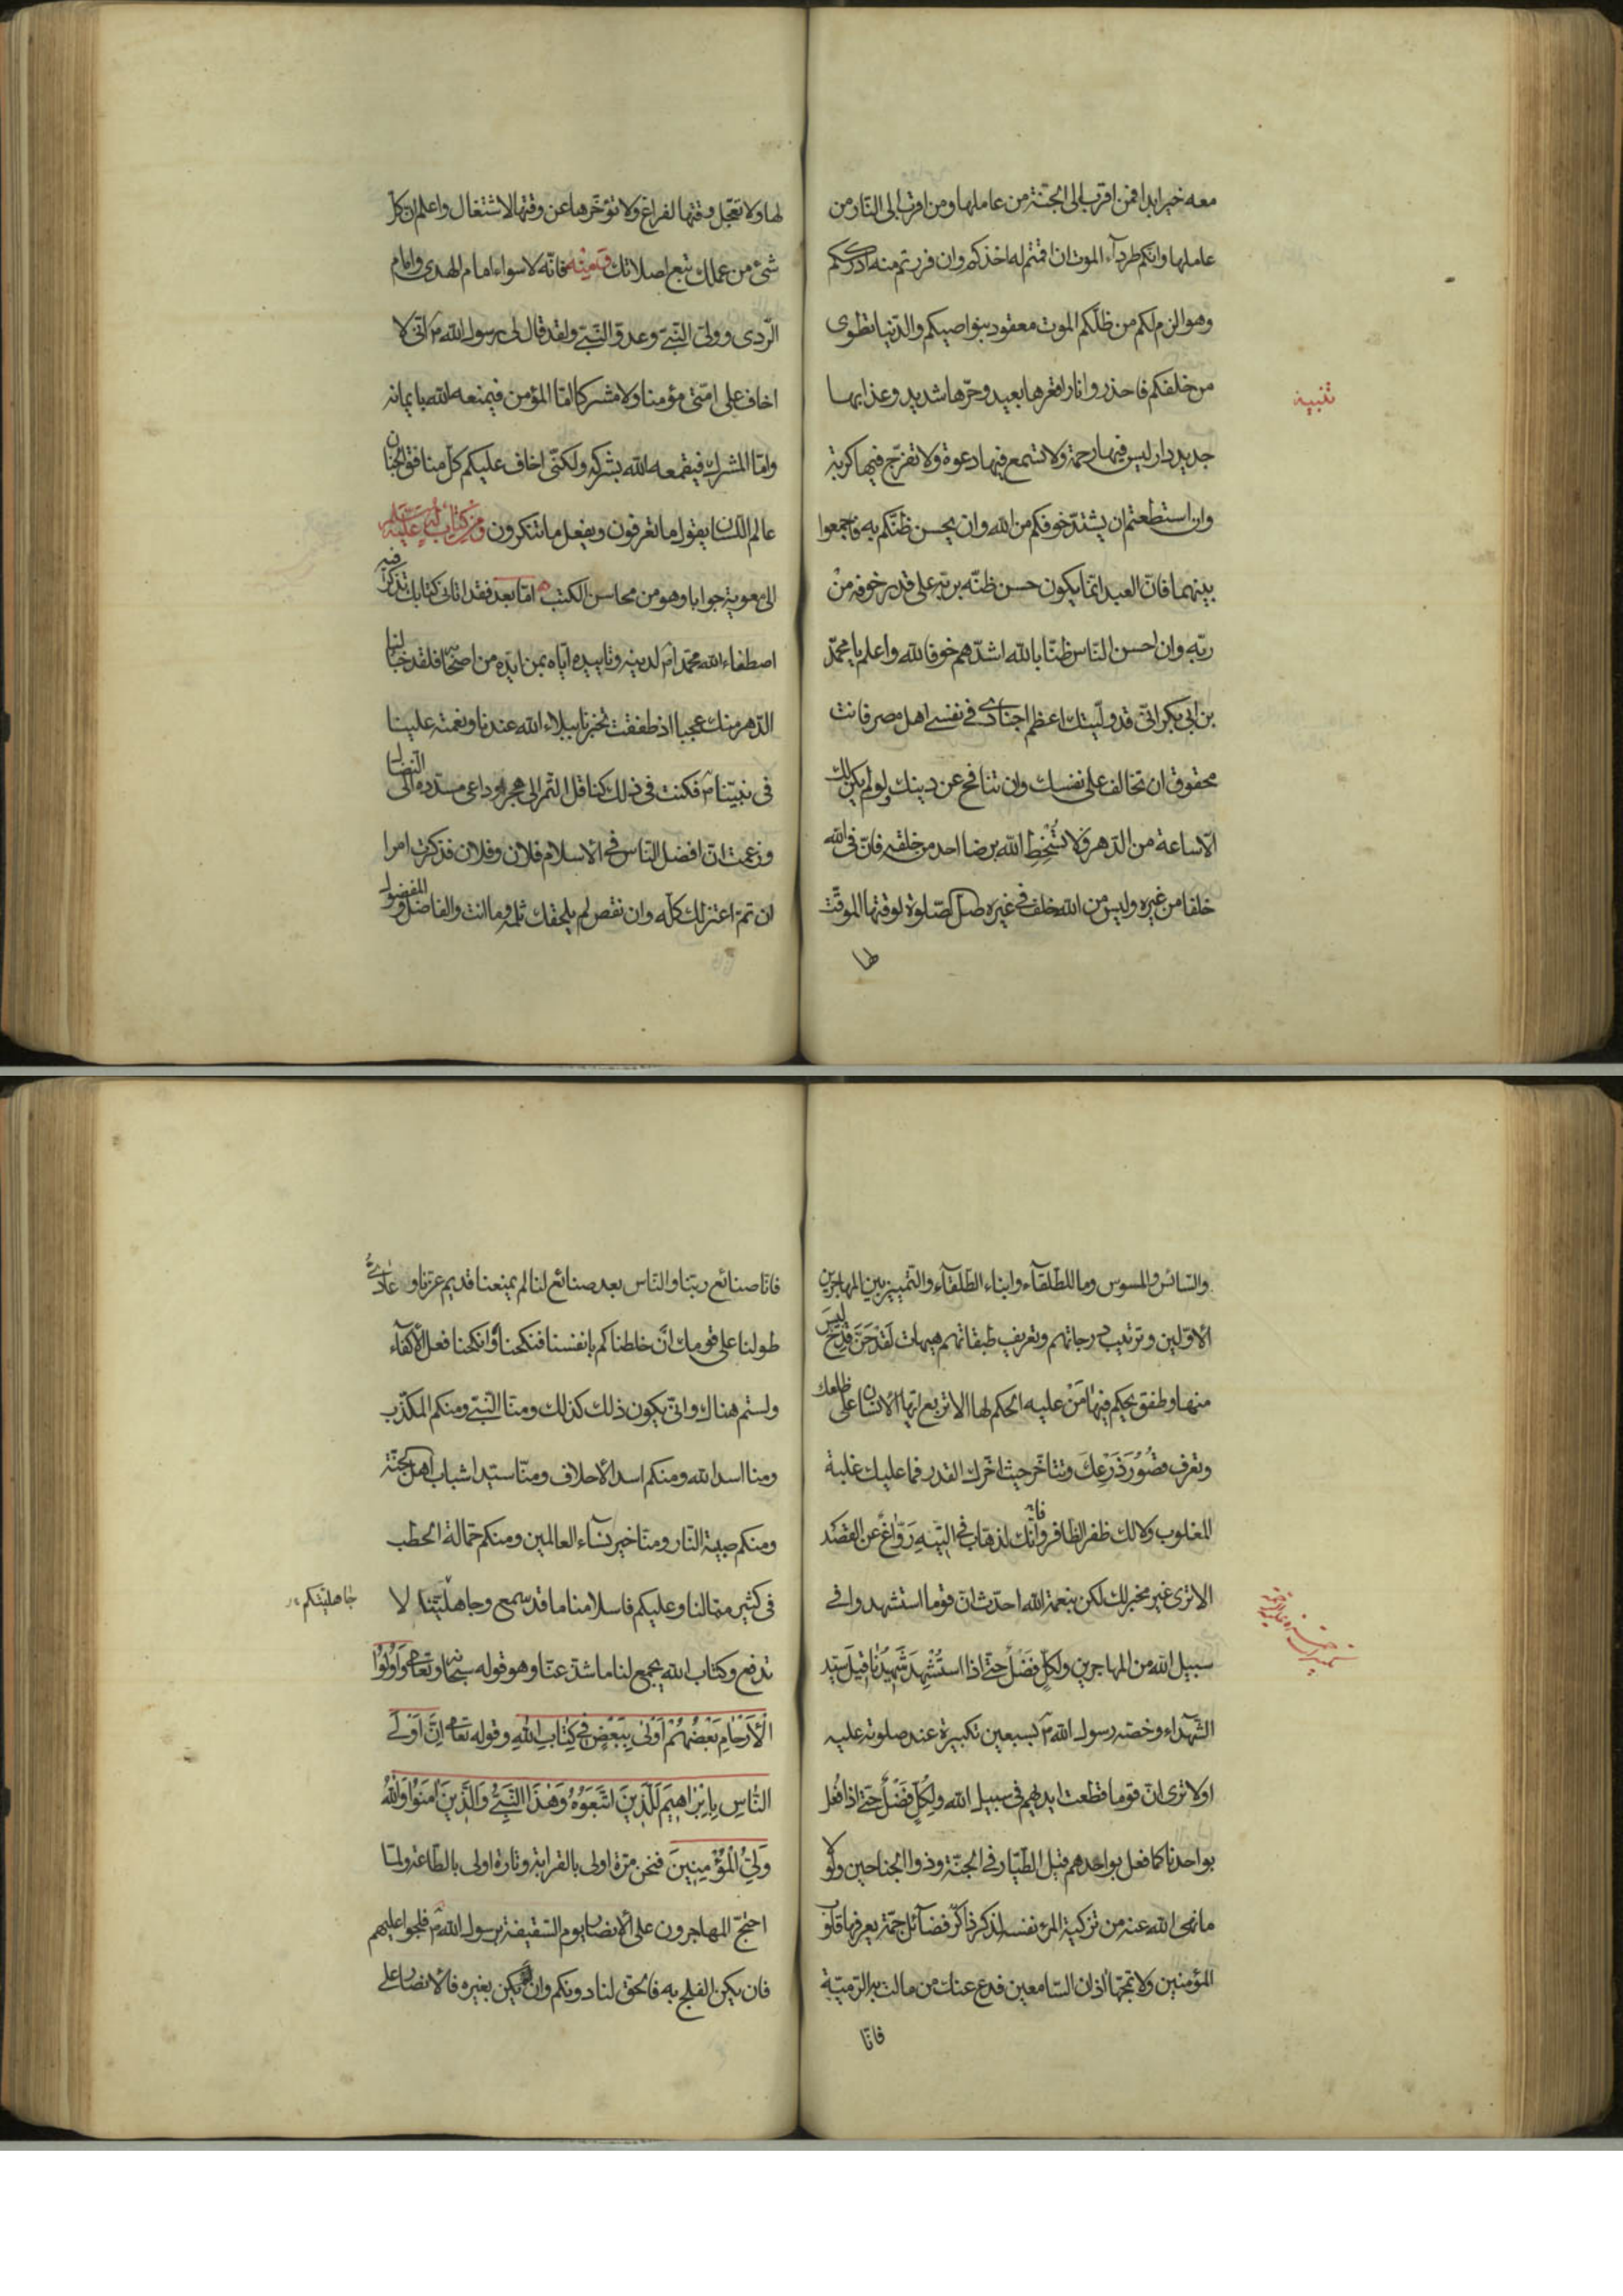 معه خير ابدا فمن اقرب الى الجنّة من عاملها ومن اقرب الى النّار من
عاملها وانكم طرداء الموت ان اقمتم له اخذكم وان فررتم منه ادرككم
وهو الزم لكم من ظلّكم الموت معقود بنواصيكم والدّنيا تطوى
من خلفكم فاحذروا نارا قعرها بعيد وحرّها شديد وعذابها
تنبيه
جديد دار ليس فيها رحمة ولا تسمع فيها دعوة ولا تفرّج فيها كربة
وان استطعتم ان يشتدّ خوفكم من الله وان يحسن ظنّكم به فاجمعوا
بينهما فانّ العبد انّما يكون حسن ظنّه بربّه على قدر خوفه من
ربّه وان احسن النّاس ظنّا بالله اشدّهم خوفا لله واعلم يا محمّد
بن ابى بكر انّى قد ولّيتك اعظم اجنادى فى نفسى اهل مصر فانت
محقوق ان تخالف على نفسك وان تنافح عن دينك ولو لم يكن لك
الّا ساعة من الدّهر ولا تُسْخِطِ الله برضا احد من خلقه فانّ فى الله
خلفا من غيره وليس من الله خلف فى غيره صلّ الصّلوة لوقتها الموقّت
لها
لها ولا تعجّل وقتها لفراغ ولا تؤخّرها عن وقتها لاشتغال واعلم ان كلّ
شئ من عملك تبع لصلاتك ومنه فانّه لا سواء امام الهدى وامام
الرّدى وولىّ النّبىّ وعدوّ النّبىّ ولقد قال لى رسول الله ص انّى لا
اخاف على امّتى مؤمنا ولا مشركا امّا المؤمن فيمنعه الله بايمانه
وامّا المشرك فيقمعه الله بشركه ولكنّى اخاف عليكم كلّ منافق الجنان
عالم اللّسان يقول ما تعرفون ويفعل ما تنكرون ومن كتاب له عليه السّلم
الى معوية جوابا وهو من محاسن الكتب امّا بعد فقد اتانى كتابك تذكر فيه
اصطفاء الله محمّدا ص لدينه وتاييده ايّاه بمن ايّده من اصحابه فلقد خبّا لنا
الدّهر منك عجبا اذ طفقت تخبرنا ببلاء الله عندنا ونعمته علينا
فى نبيّنا ص فكنت فى ذلك كناقل التّمر الى هجر او داعى مسدّده الى النّضال
وزعمت انّ افضل النّاس فى الاسلام فلان وفلان فذكرت امرا
ان تمّ اعتزلك كلّه وان نقص لم يلحقك ثلمه وما انت والفاضل والمفضول
والسّائس والمسوس وما للطّلقآء وابناء الطّلقآء والتّمييز بين المهاجرين
الاوّلين وترتيب درجاتهم وتعريف طبقاتهم هيهات لَقَدْ حَنَّ قِدْحٌ ليسَ
منها وطفق يحكم فيها مَنْ عليه الحكم لها الا تربع ايّها الانسان على ظلعك
وتعرف قُصُورَ ذَرْعِكَ وتتاخّر حيث اخّرك القدر فما عليك غلبة
المغلوب ولا لك ظفر الظافر وانّك لذهّاب فى التّيهِ رَوّاغٌ عن القصد
الا ترى غير مخبر لك لكن بنعمة الله احدّث انّ قوما استشهدوا فى
سبيل الله من المهاجرين ولكلٍّ فَضْلٌ حتّى اذا استُشْهِدَ شَهِيدُنا قيلَ سيّد
الشّهداء وخصّه رسول الله ص بسبعين تكبيرة عند صلوته عليه
اولا ترى انّ قوما قطعت ايديهم فى سبيل الله ولكلٍّ فَضْلٌ حتّى اذا فُعِل
بواحدنا كما فعل بواحدهم قيل الطّيّار فى الجنّة وذو الجناحين ولولا
ما نهى الله عنه من تزكية المرء نفسه لذكر ذاكرٌ فضآئل جمّة يعرفها قلوب
المؤمنين ولا تمجّها اذان السّامعين فدع عنك من مالت به الرّميّة
فانّا
فانّا صنائع ربّنا والنّاس بعد صنائع لنا لم يمنعنا قديم عزّنا وعادىّ
طولنا على قومك انْ خلطناكم بانفسنا فنكحنا وانكحنا فعل الاكفآء
ولستم هناك وانّى يكون ذلك كذلك ومنّا النّبىّ ومنكم المكذّب
ومنا اسد الله ومنكم اسد الاحلاف ومنّا سيّدا شباب اهل الجنّة
ومنكم صبية النّار ومنّا خير نسآء العالمين ومنكم حمّالة الحطب
فى كثير ممّا لنا وعليكم فاسلامنا ما قد سمع وجاهليّتنا لا
جاهليّتكم
تدفع وكتاب الله يجمع لنا ما شذّ عنّا وهو قوله سبحانه وتعالى وَاُولُوا
الْاَرْحَامِ بَعْضُهُمْ اَوْلى بِبَعْضٍ فى كِتابِ اللهِ وقوله تعالى اِنَّ اَوْلَى
النّاسِ بِاِبْراهِيمَ لَلَّذِينَ اتَّبَعُوهُ وَهذَا النَّبِىُّ وَالَّذِينَ آمَنُوا وَاللهُ
وَلِىُّ الْمُؤْمِنِينَ فنحن مرّة اولى بالقرابة وتارة اولى بالطّاعة ولمّا
احتجّ المهاجرون على الانصار يوم السّقيفة برسول الله ص فلجوا عليهم
فان يكن الفلج به فالحقّ لنا دونكم وان يكن بغيره فالانصار على